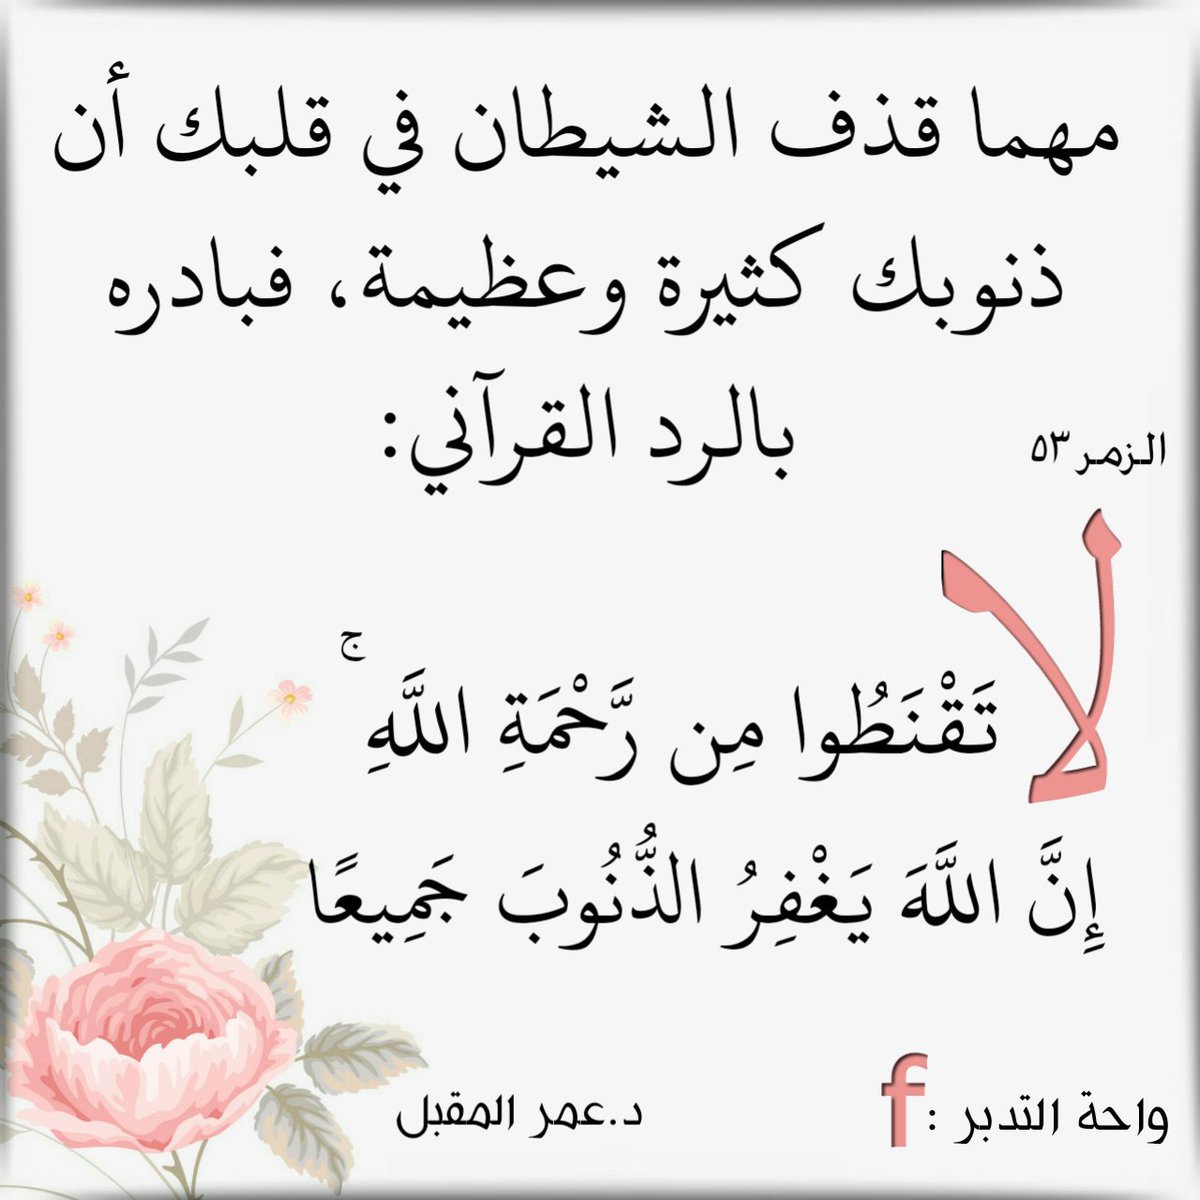 مهما قذف الشيطان في قلبك أن
ذنوبك كثيرة وعظيمة، فبادره
بالرد القرآني:
الزمر ٥٣
لا تَقْنَطُوا مِن رَّحْمَةِ اللَّهِ ۚ
إِنَّ اللَّهَ يَغْفِرُ الذُّنُوبَ جَمِيعًا
واحة التدبر : f
د.عمر المقبل